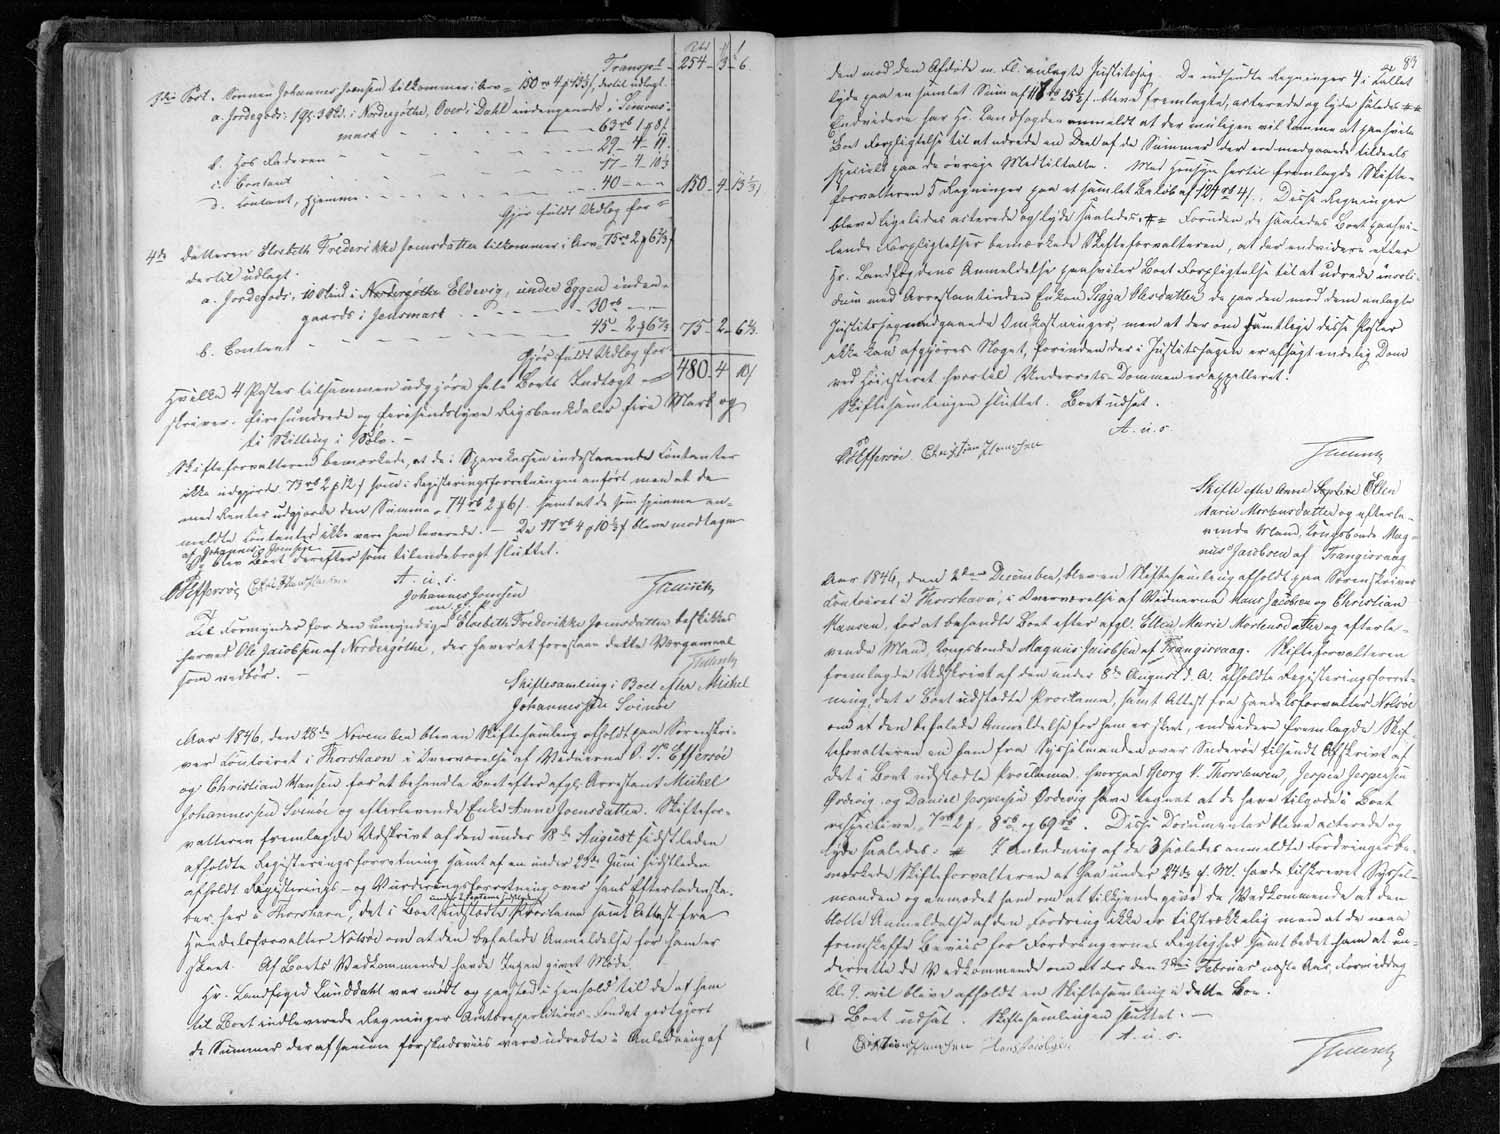 Rbd ß
Transport 254 - 3 - 6
3die Post. Sønnen Johannes Joensen tilkommer i Arv = 150 rd 4 ß 13⅓, dertil udlagt:
a. Jordegods: i Nordregøthe, Over i Dahl indengaards i Simons-
mark - - - 63 rb 1 ß 8
b. Hos Faderen - - - 29 - 4 - 11
c. Contant - - - 17 - 4 - 10⅓
d. Contant, hjemme - - - 40 - 150 - 4 - 13⅓
Gjør fuldt Udlæg for
4de Datteren Elsebeth Frederikke Joensdatter tilkommer i Arv 75 rd 2 ß 6⅔
dertil udlagt.
a. Jordegods, i Nordregøthe Eldevig, under Eggen inden-
gaards i Jensmark - - 30 rb
b. Contant - - - 45 - 2 ß 6⅔ 75 - 2 - 6⅔
Gjør fuldt Udlæg for
Hvilke 4 Poster tilsammen udgjøre hele Boets Indtægt 480 - 4 - 10
skriver: firehundrede og firesindstyve Rigsbankdaler fire Mark og
ti Skilling i Sølv.
Skifteforvalteren bemærkede, at de i Sparekassen indestaaende Contanter
ikke udgjorde 73 rb 2 ß 12 som i Registreringsforretningen anført men at de
med Renter udgjorde den Summa 74 rb 2 ß 6 samt at de som hjemme an-
meldte Contanter ikke vare ham leverede. - De 17 rb 4 ß 10⅓ bleve modtagne
af Johannes Joensen
Og blev Boet derefter som tilendebragt sluttet.
Effersøe Christian Hansen A. u. s. Tillisch
Johannes Joensen
Til Formynder for den umyndige Elsebeth Frederikke Joensdatter beskikkes
herved Ole Jacobsen af Nordregøthe, der haver at forestaae dette Værgemaal
som vedbør. - Tillisch
Skiftesamling i Boet efter Michel
Johannessen Svinøe
Aar 1846, den 28de November blev en Skiftesamling afholdt paa Sørenskri-
ver Contoiret i Thorshavn i Overværelse af Vidnerne Effersøe
og Christian Hansen for at behandle Boet efter afgl. Arrestant Michel
Johannessen Svinøe og efterlevende Enke Anne Joensdatter. Skiftefor-
valteren fremlagde Udskrivt af den under 18de August sidstleden
afholdte Registreringsforretning samt af en under 23de Juni sidstleden
afholdt Registrerings- og Vurderingsforretning over hans Efterladenska-
ber her i Thorshavn, det i Boet udstædte Proclama samt Attest fra
Handelsforvalter Nolsøe om at den befalede Anmeldelse for ham er
skeet. Af Boets Vedkommende havde Ingen givet Møde.
Hr. Landfoged Lunddahl var mødt og paastod i Henhold til de af ham
til Boet indleverede Regninger Amtsrepartitions-Fondet godtgjort
de Summer der af samme forskudsviis vare udredte i Anledning af
83
den mod den Afdøde m. Fl. anlagte Justitssag. De indsendte Regninger 4 i Tallet
lyde paa en samlet Sum af rb 25 ß, bleve fremlagte, acterede og lyde saaledes
Endvidere har Hr. Landfogden anmeldt at der muligen vil komme at paahvile
Boet Forpligtelse til at udrede en Deel af de Summer der ere medgaaede tildeels
specielt paa de øvrige Medtiltalte. Med Hensyn hertil fremlagde Skifte-
forvalteren 5 Regninger paa et samlet Beløb af 124 rb 4. Disse Regninger
bleve ligeledes acterede og lyde saaledes. Foruden de saaledes Boet paahvi-
lende Forpligtelser bemærkede Skifteforvalteren, at der endvidere efter
Hr. Landfogdens Anmeldelse paahviler Boet Forpligtelse til at udrede in soli-
dum med Arrestantinden Enken Sigga Olesdatter de paa den mod dem anlagte
Justitssag medgaaede Omkostninger, men at der om samtlige disse Poster
ikke kan afgjøres Noget, forinden der i Justitssagen er afsagt endelig Dom
ved Høiesteret hvortil Underrets-Dommen er appelleret.
Skiftesamlingen sluttet. Boet udsat.
A. u. s.
Effersøe Christian Hansen Tillisch
Skifte efter Anne Sophie Ellen
Marie Mortensdatter og efterle-
vende Mand, Kongsbonde Mag-
nus Jacobsen af Trangisvaag
Aar 1846, den 2den December, blev en Skiftesamling afholdt paa Sørenskriver
Contoiret i Thorshavn, i Overværelse af Vidnerne Hans Jacobsen og Christian
Hansen, for at behandle Boet efter afgl. Ellen Marie Mortensdatter og efterle-
vende Mand, Kongsbonde Magnus Jacobsen af Trangisvaag. Skifteforvalteren
fremlagde Udskrivt af den under 8de August d. A. afholdte Registreringsforret-
ning, det i Boet udstædte Proclama, samt Attest fra Handelsforvalter Nolsøe
om at den befalede Anmeldelse for ham er skeet, endvidere fremlagde Skif-
teforvalteren en ham fra Sysselmanden over Suderøe tilsendt Afskrivt af
det i Boet udstædte Proclama hvorpaa Georg V. Thorsteinsen, Jespen Jespersen
Ørdevig og Daniel Jespersen Ørdevig have tegnet at de have tilgode i Boet
respective 7 rb 2 ß, 8 rb og 69 rb. Disse Documenter bleve acterede og
lyde saaledes: I Anledning af de saaledes anmeldte Fordringer be-
mærkede Skifteforvalteren at han under 24de f. M. havde tilskrevet Syssel-
manden og anmodet ham om at tilkjendegive de Vedkommende at den
blotte Anmeldelse af den Fordring ikke er tilstrækkelig men at de maa
fremskaffe Beviis for Fordringernes Rigtighed samt bedet ham at un-
derrette de Vedkommende om at der den 3die Februar næste Aar, Formiddag
Kl. 9. vil blive afholdt en Skiftesamling i dette Boe.
Boet udsat. Skiftesamlingen sluttet. -
A. u. s.
Christian Hansen Hans Jacobsen Tillisch